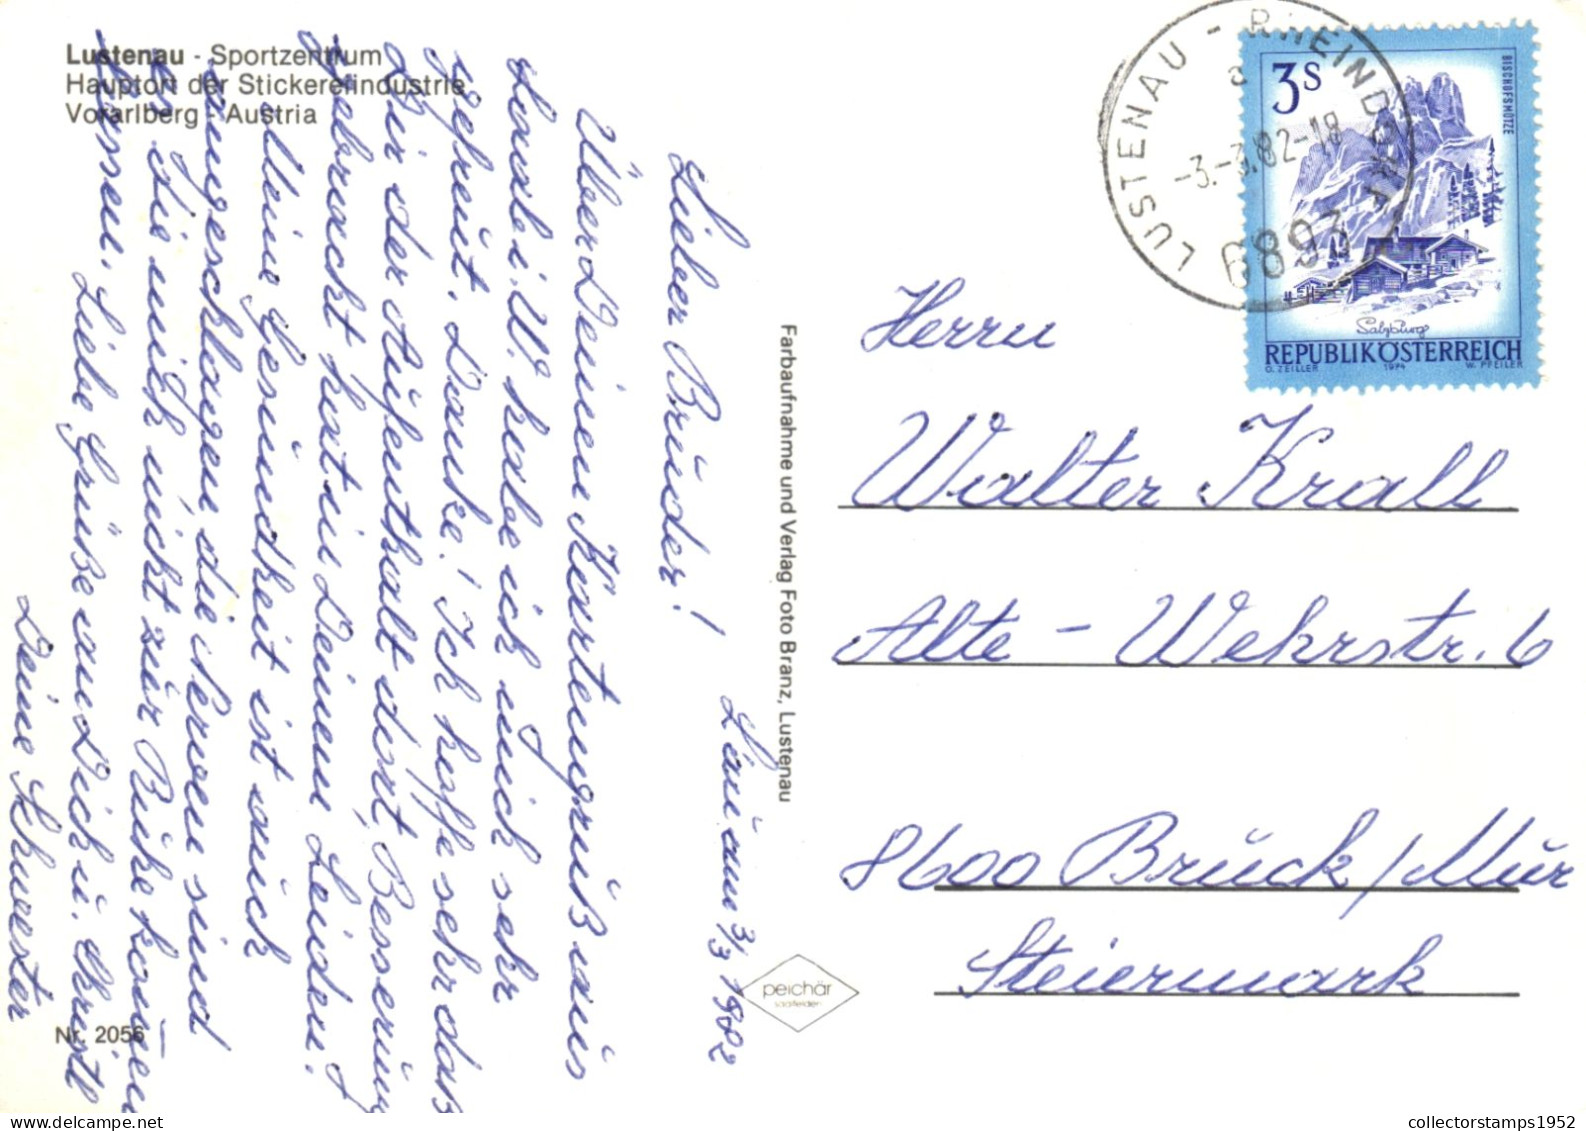 Lustenau - Sportzentrum
Hauptort der Stickereiindustrie
Vorarlberg - Austria
Lieber Bruder!
Über Deinen Kartengruß aus
habe ich mich sehr
gefreut. Danke! Ich hoffe sehr daß
Dir der Aufenthalt dort Besserung
gebracht hat in Deinem Leiden.
Meine Gesundheit ist auch
angeschlagen die Nerven sind
es die mich nicht zur Ruhe kommen
lassen. Liebe Grüße an Dich u. Christl
Deine Schwester
3/3 1982
Nr. 2056
Farbaufnahme und Verlag Foto Branz, Lustenau
peichär
saalfelden
LUSTENAU - RHEINDORF
-3.-3.82-18
6893
3S
BISCHOFSMÜTZE
Salzburg
REPUBLIK ÖSTERREICH
O. ZEILLER 1974 W. PFEILER
Herrn
Walter Krall
Alte - Wehrstr. 6
8600 Bruck/Mur
Steiermark
collectorstamps1952